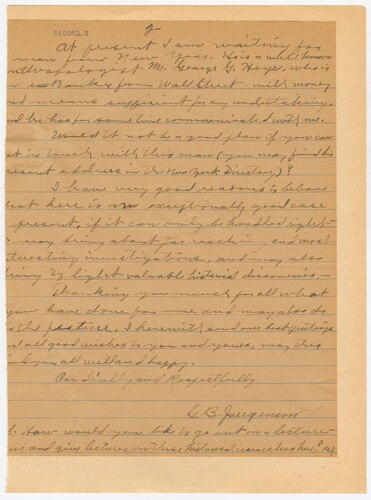 240083.2
2
At present I am waiting for
man from New York. He is a well known
nthropologist Mr. George G. Heye, who is
n ex Banker from Wall Street - with money
nd means sufficient for any undertaking,
nd he has for some time communicated with me.
Would it not be a good plan if you can
et in touch with this man (you may find his
resent address in the New York Directory)?
I have very good reasons to believe
hat here is an exceptionally good case
present, if it can only be handled right -
may bring about far reaching and most
teresting investigations, and may also
ring to light valuable historical discoveries. -
Thanking you much for all what
you have done for me and may also do
the , I herewith send our best greetings
nd all good wishes to you and yours, may this
ind you all well and happy.
Cordially and Respectfully
C B Juergenson
S. How would you like to go out on a lecture -
and give lectures on these historical researches here?